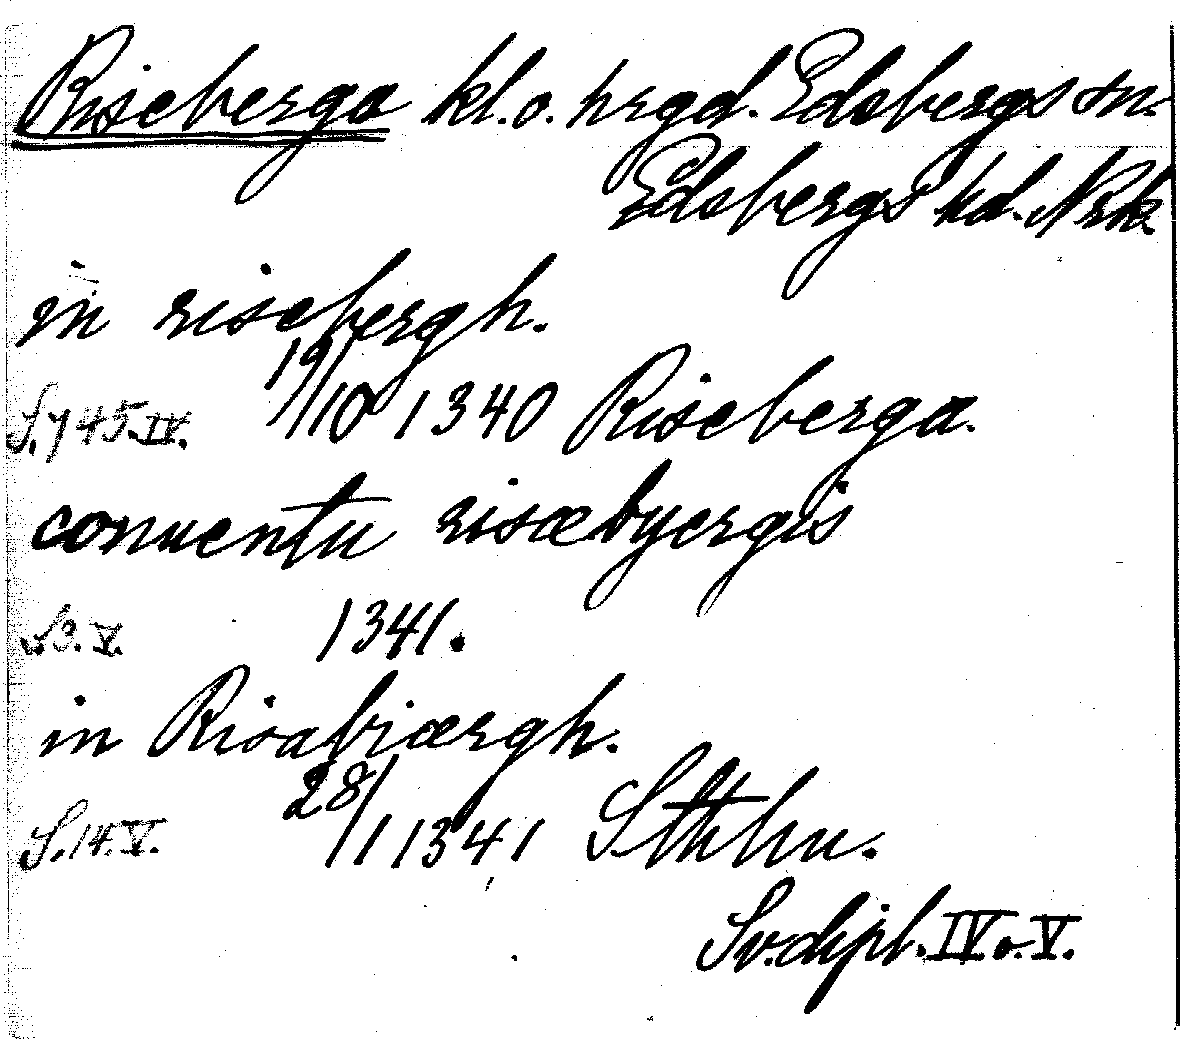 Riseberga kl. o. hrgd. Edsbergs sn.
Edsbergs hd. Nrk.
in risebergh.
S. 745. IV. 19/10 1340 Riseberga.
conuentu risæbyergis
S 3. V. 1341.
in Risabiærgh.
S. 14. V. 28/1 1341 Sthlm.
Sv. dipl. IV o. V.